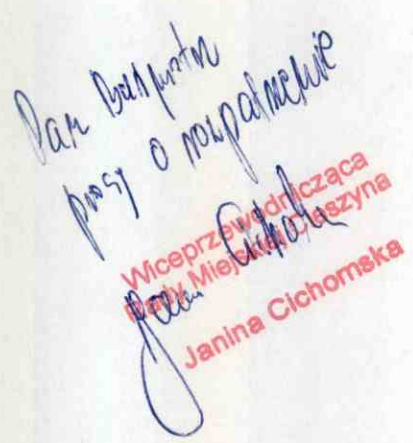 Pan Burmistrz
proszę o rozpatrzenie
Wiceprzewodnicząca
Rady Miejskiej Cieszyna
Janina Cichomska